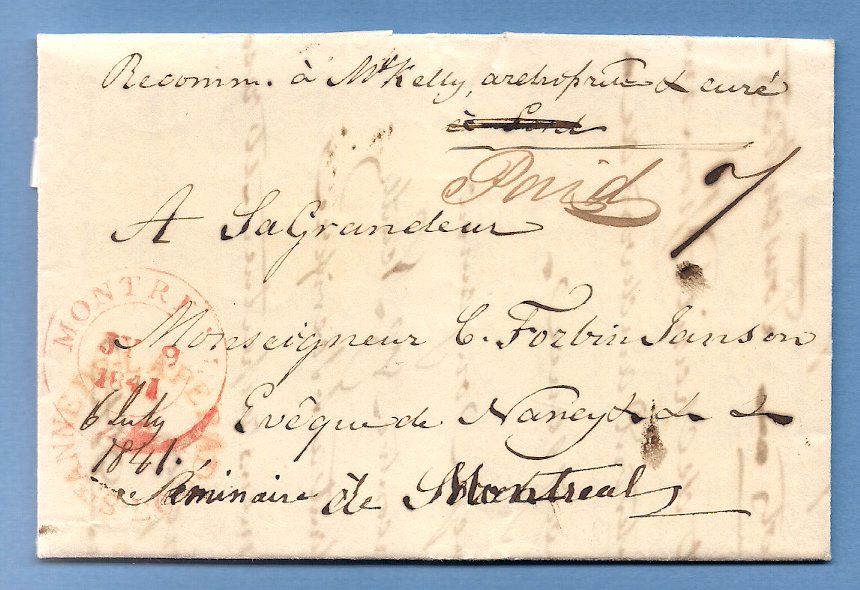 Recomm. à Mr Kelly, archiprêtre & curé
à Sorel
Paid 7
A Sa Grandeur
Monseigneur C. Forbin Janson
Evêque de Nancy & & &
Séminaire de Montreal
6 July
1841.
MONTREAL
JY 9
1841
STE ANNE